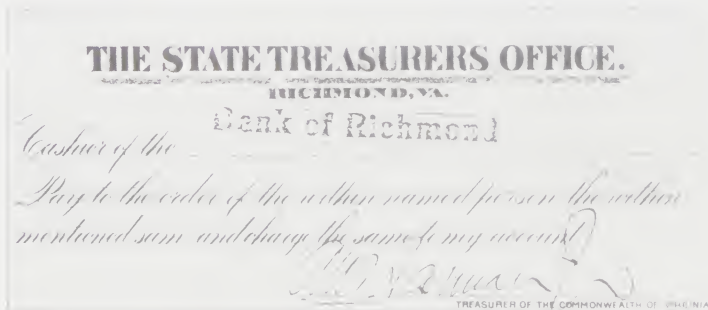 THE STATE TREASURERS OFFICE.
RICHMOND, VA.
Bank of Richmond
Cashier of the
Pay to the order of the within named person the within
mentioned sum and charge the same to my account
TREASURER OF THE COMMONWEALTH OF VIRGINIA